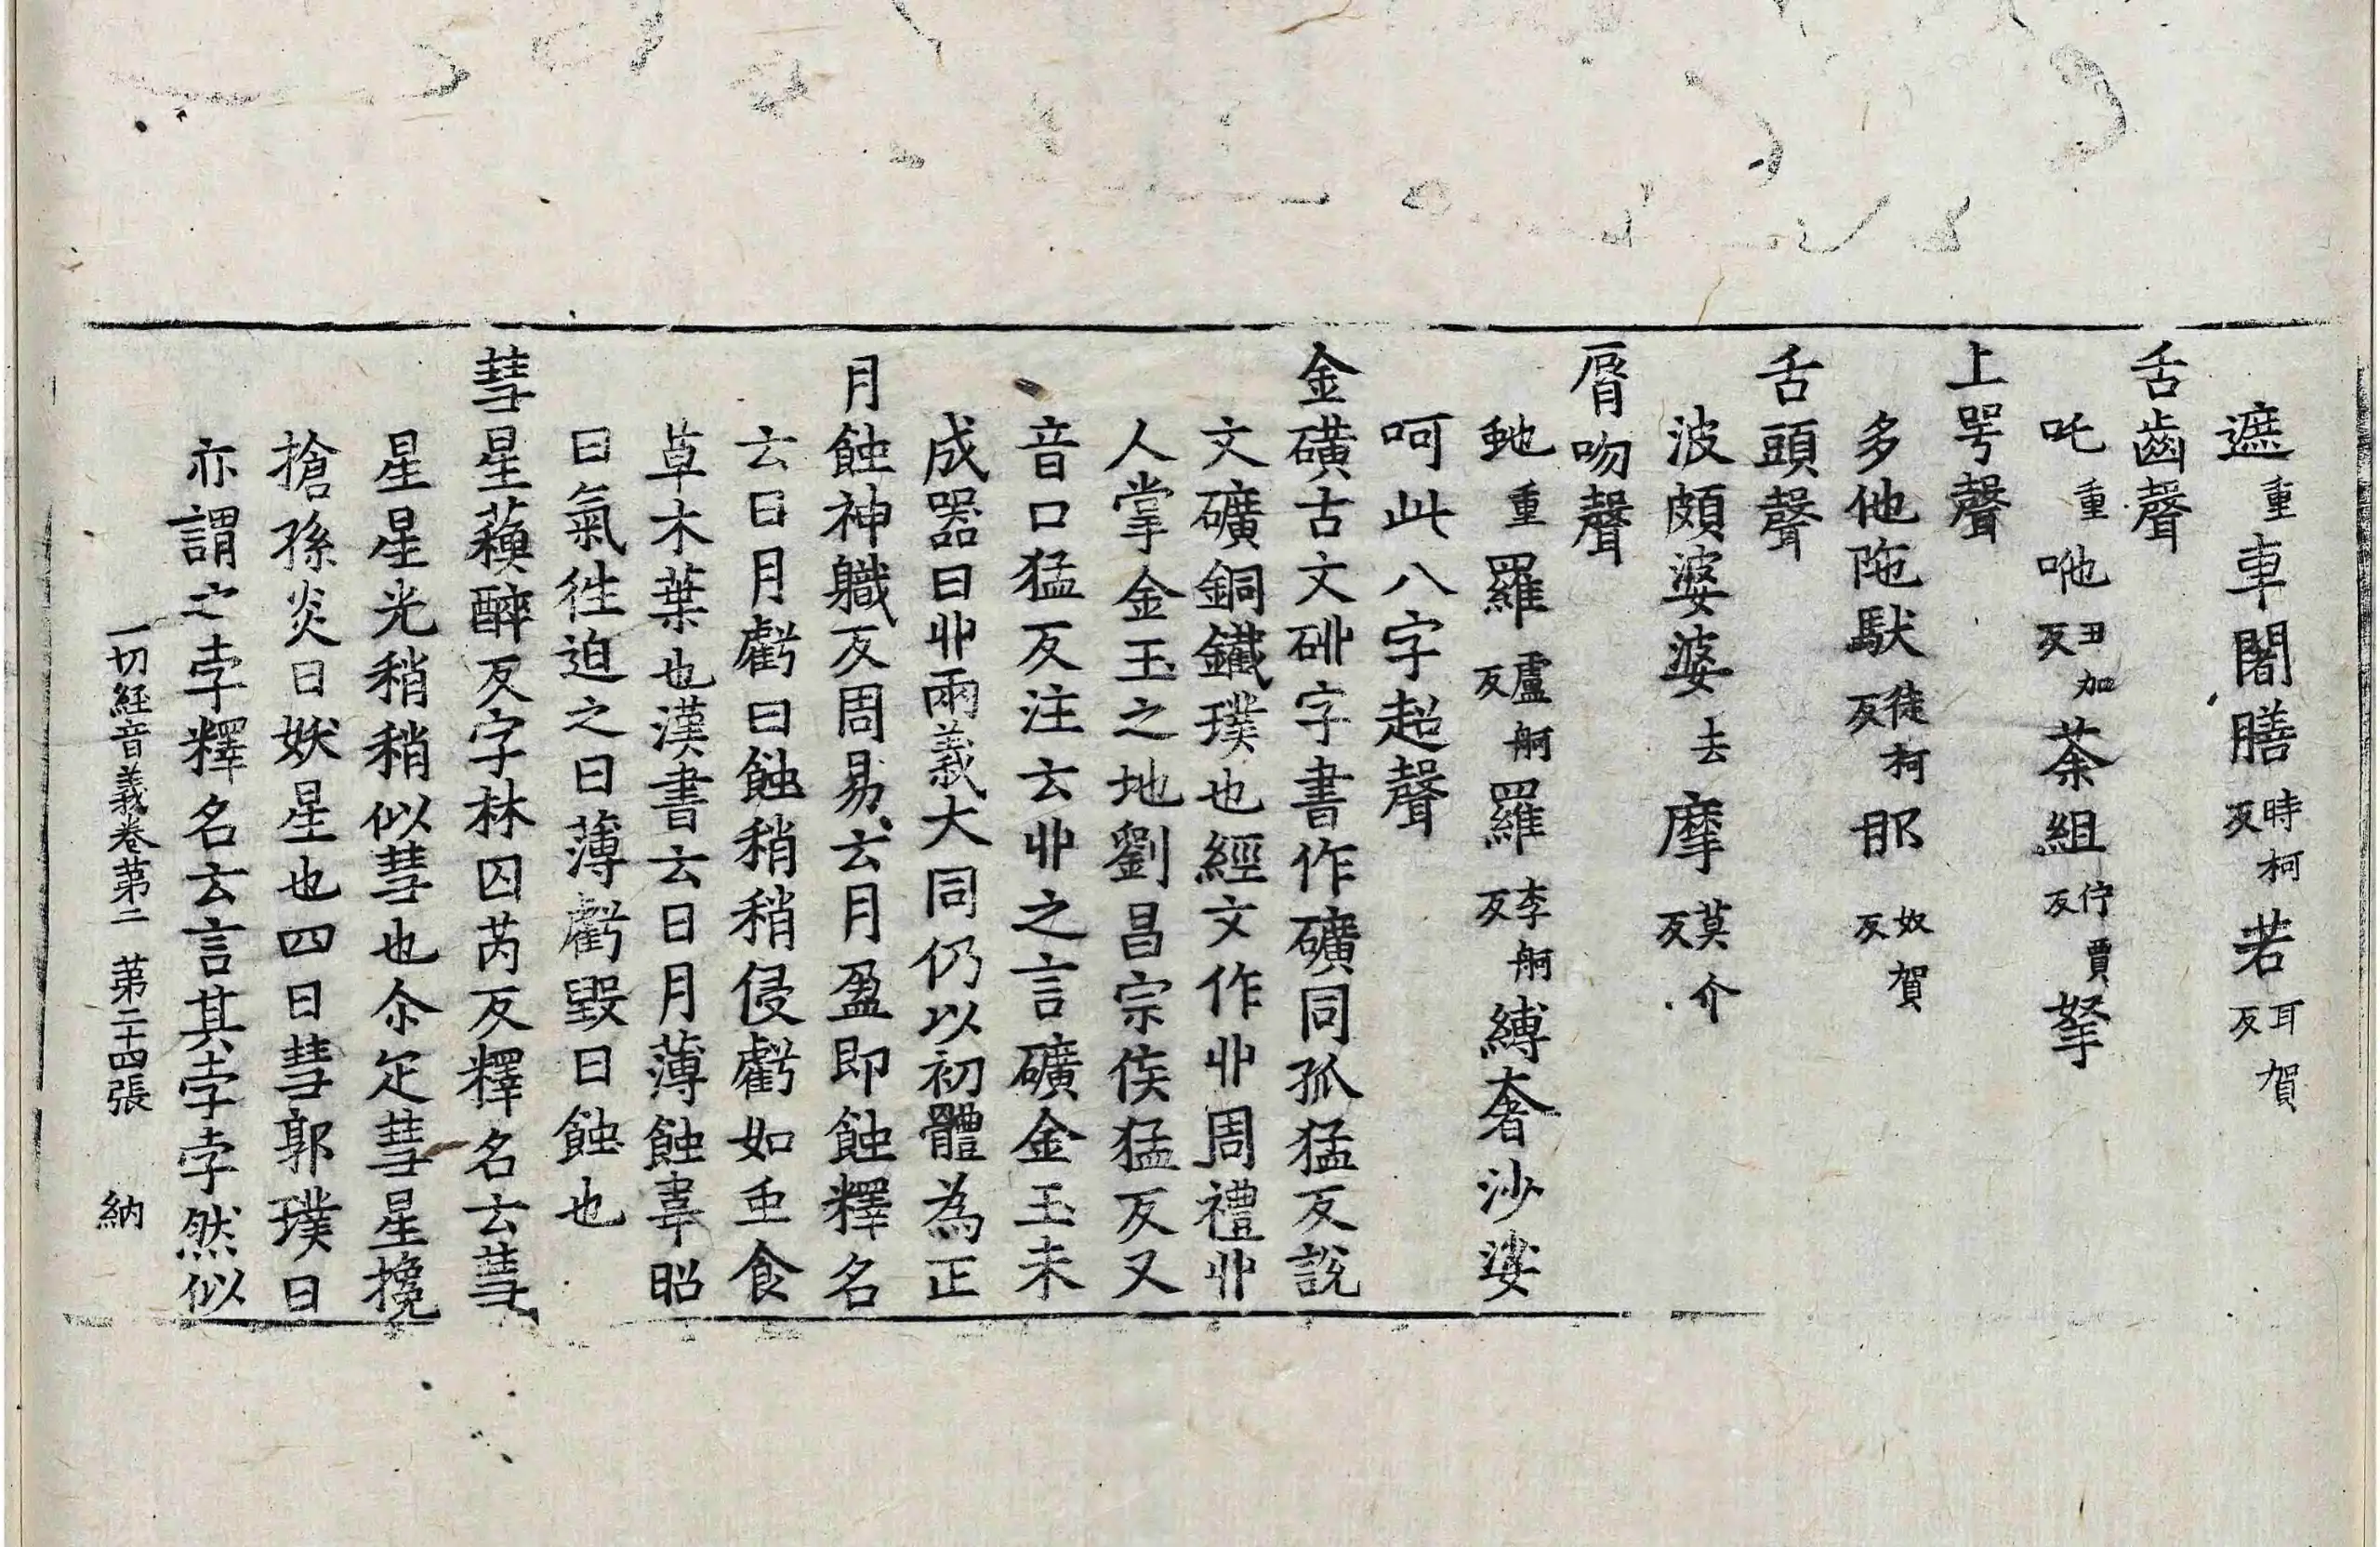 遮重車闍膳時柯反若耳賀反
舌齒聲
吒重咃丑加反荼組佇賈反拏
上咢聲
多他陁馱徒柯反那奴賀反
舌頭聲
波頗婆婆去摩莫介反
脣吻聲
虵重羅盧舸反羅李舸反縛奢沙娑
呵此八字超聲
金磺古文砙字書作礦同孤猛反說
文礦銅鐵璞也經文作丱周禮丱
人掌金玉之地劉昌宗侯猛反又
音口猛反注云丱之言礦金玉未
成器曰丱兩義大同仍以初體為正
月蝕神軄反周易云月盈即蝕釋名
云日月虧曰蝕稍稍侵虧如虫食
草木葉也漢書云日月薄蝕韋昭
曰氣徃迫之曰薄虧毀曰蝕也
彗星蘓醉反字林囚芮反釋名云彗
星星光稍稍似彗也尒疋彗星攙
搶孫炎曰妖星也四曰彗郭璞曰
亦謂之孛釋名云言其孛孛然似
一切經音義卷第二 第二十四張 納